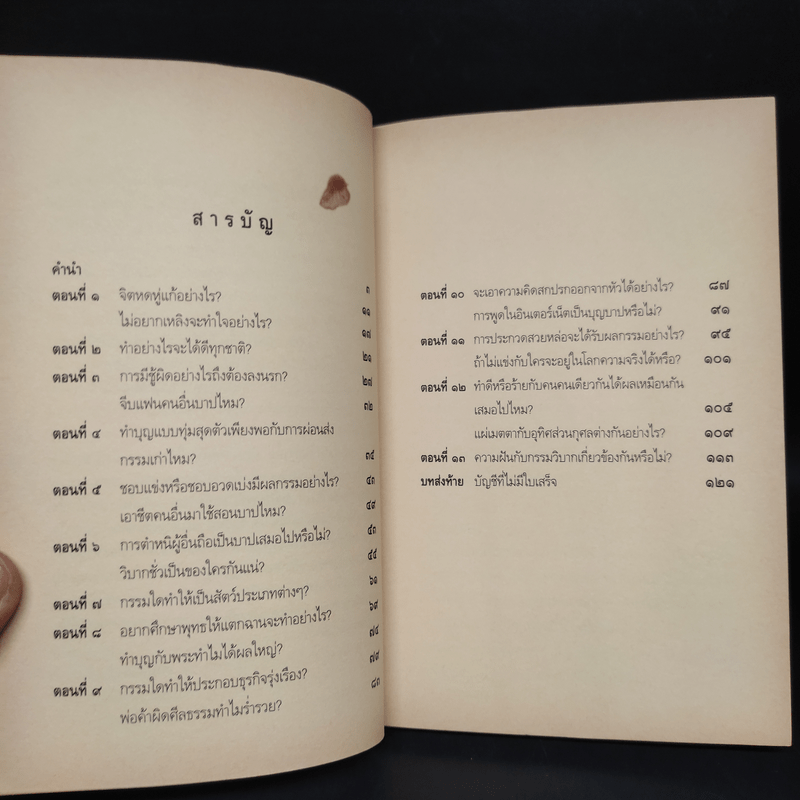 สารบัญ
คำนำ ๓
ตอนที่ ๑ จิตหดหู่แก้อย่างไร? ๑๑
ไม่อยากเหลิงจะทำใจอย่างไร? ๑๗
ตอนที่ ๒ ทำอย่างไรจะได้ดีทุกชาติ? ๒๑
ตอนที่ ๓ การมีชู้ผิดอย่างไรถึงต้องลงนรก? ๒๗
จีบแฟนคนอื่นบาปไหม? ๓๒
ตอนที่ ๔ ทำบุญแบบทุ่มสุดตัวเพียงพอกับการผ่อนส่ง
กรรมเก่าไหม? ๓๕
ตอนที่ ๕ ชอบแข่งหรือชอบอวดเบ่งมีผลกรรมอย่างไร? ๔๓
เอาชีวิตคนอื่นมาใช้สอนบาปไหม? ๔๙
ตอนที่ ๖ การตำหนิผู้อื่นถือเป็นบาปเสมอไปหรือไม่? ๕๓
วิบากชั่วเป็นของใครกันแน่? ๕๕
ตอนที่ ๗ กรรมใดทำให้เป็นสัตว์ประเภทต่างๆ? ๖๑
ตอนที่ ๘ อยากศึกษาพุทธให้แตกฉานจะทำอย่างไร? ๖๙
ทำบุญกับพระทำไมได้ผลใหญ่? ๗๔
ตอนที่ ๙ กรรมใดทำให้ประกอบธุรกิจรุ่งเรือง? ๗๙
พ่อค้าผิดศีลธรรมทำไมร่ำรวย? ๘๓
ตอนที่ ๑๐ จะเอาความคิดสกปรกออกจากหัวได้อย่างไร? ๘๗
การพูดในอินเตอร์เน็ตเป็นบุญบาปหรือไม่? ๙๑
ตอนที่ ๑๑ การประกวดสวยหล่อจะได้รับผลกรรมอย่างไร? ๙๕
ถ้าไม่แข่งกับใครจะอยู่ในโลกความจริงได้หรือ? ๑๐๑
ตอนที่ ๑๒ ทำดีหรือร้ายกับคนคนเดียวกันได้ผลเหมือนกัน
เสมอไปไหม? ๑๐๕
แผ่เมตตากับอุทิศส่วนกุศลต่างกันอย่างไร? ๑๐๙
ตอนที่ ๑๓ ความฝันกับกรรมวิบากเกี่ยวข้องกันหรือไม่? ๑๑๓
บทส่งท้าย บัญชีที่ไม่มีใบเสร็จ ๑๒๑